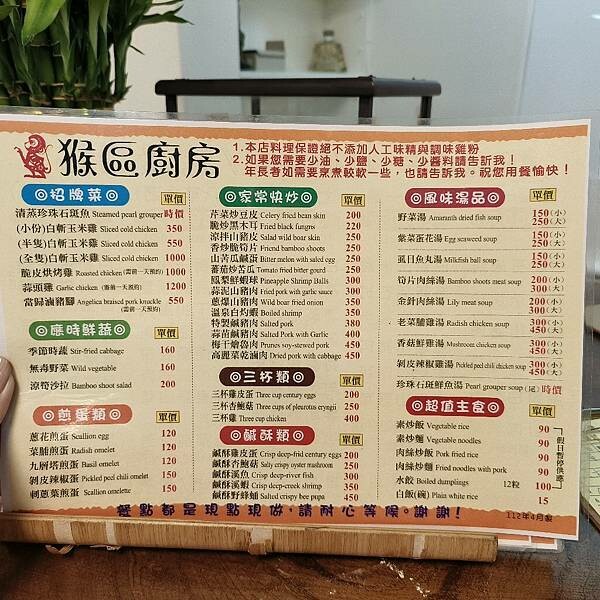 猴區廚房
1.本店料理保證絕不添加人工味精與調味雞粉
2.如果您需要少油、少鹽、少糖、少醬料請告訴我！
年長者如需要烹煮較軟一些，也請告訴我。祝您用餐愉快！
◎招牌菜◎ 單價
清蒸珍珠石斑魚 Steamed pearl grouper 時價
(小份)白斬玉米雞 Sliced cold chicken 350
(半隻)白斬玉米雞 Sliced cold chicken 550
(全隻)白斬玉米雞 Sliced cold chicken 1000
脆皮烘烤雞 Roasted chicken(需前一天預約) 1000
蒜頭雞 Garlic chicken (需前一天預約) 1200
當歸滷豬腳 Angelica braised pork knuckle 550
(需前一天預約)
◎應時鮮蔬◎ 單價
季節時蔬 Stir-fried cabbage 160
無毒野菜 Wild vegetable 160
涼筍沙拉 Bamboo shoot salad 200
◎煎蛋類◎ 單價
蔥花煎蛋 Scallion egg 120
菜脯煎蛋 Radish omelet 120
九層塔煎蛋 Basil omelet 120
剝皮辣椒蛋 Pickled peel chili omelet 150
刺蔥葉煎蛋 Scallion omelette 150
◎家常快炒◎ 單價
芹菜炒豆皮 Celery fried bean skin 200
脆炒黑木耳 Fried black fungus 220
涼拌山豬皮 Salad wild boar skin 250
香炒脆筍片 Fried bamboo shoots 250
山苦瓜鹹蛋 Bitter melon with saled egg 250
蕃茄炒苦瓜 Tomato fried bitter gourd 250
鳳梨鮮蝦肉 Pineapple Shrimp Balls 300
蒜泥山豬肉 Fried pork with garlic sauce 300
蔥爆山豬肉 Wild boar fried onion 350
溫泉白灼蝦 Boiled shrimp 350
特製鹹豬肉 Salted pork 380
蒜苗鹹豬肉 Salted Pork with Garlic 400
梅干燴魯肉 Prunes soy-stewed pork 450
高麗菜乾滷肉 Dried pork with cabbage 450
◎三杯類◎ 單價
三杯雞皮蛋 Three cup century eggs 200
三杯杏鮑菇 Three cups of pleurotus eryngii 250
三杯雞 Three cup chicken 400
◎鹹酥類◎ 單價
鹹酥雞皮蛋 Crisp deep-frid century eggs 200
鹹酥杏鮑菇 Salty crispy oyster mushroom 250
鹹酥溪魚 Crisp deep-river fish 300
鹹酥溪蝦 Crisp deep-creek shrimp 350
鹹酥野蜂蛹 Salted crispy bee pupa 450
◎風味湯品◎ 單價
野菜湯 Amaranth dried fish soup 150(小)
250(大)
紫菜蛋花湯 Egg seaweed soup 150(小)
250(大)
虱目魚丸湯 Milkfish ball soup 150(小)
250(大)
筍片肉絲湯 Bamboo shoot meat soup 200(小)
300(大)
金針肉絲湯 Lily meat soup 200(小)
300(大)
老菜脯雞湯 Radish chicken soup 300(小)
450(大)
香菇鮮雞湯 Mushroom chicken soup 300(小)
450(大)
剝皮辣椒雞湯 Pickled peel chili chicken soup 300(小)
450(大)
珍珠石斑鮮魚湯 Pearl grouper soup (尾)時價
◎超值主食◎ 單價
素炒飯 Vegetable rice 90
素炒麵 Vegetable noodles 90
肉絲炒飯 Pork fried rice 90
肉絲炒麵 Fried noodles with pork 90
水餃 Boiled dumplings 12粒 100
白飯(碗) Plain white rice 15
假日暫停供應
餐點都是現點現做，請耐心等候。謝謝！
112年4月製